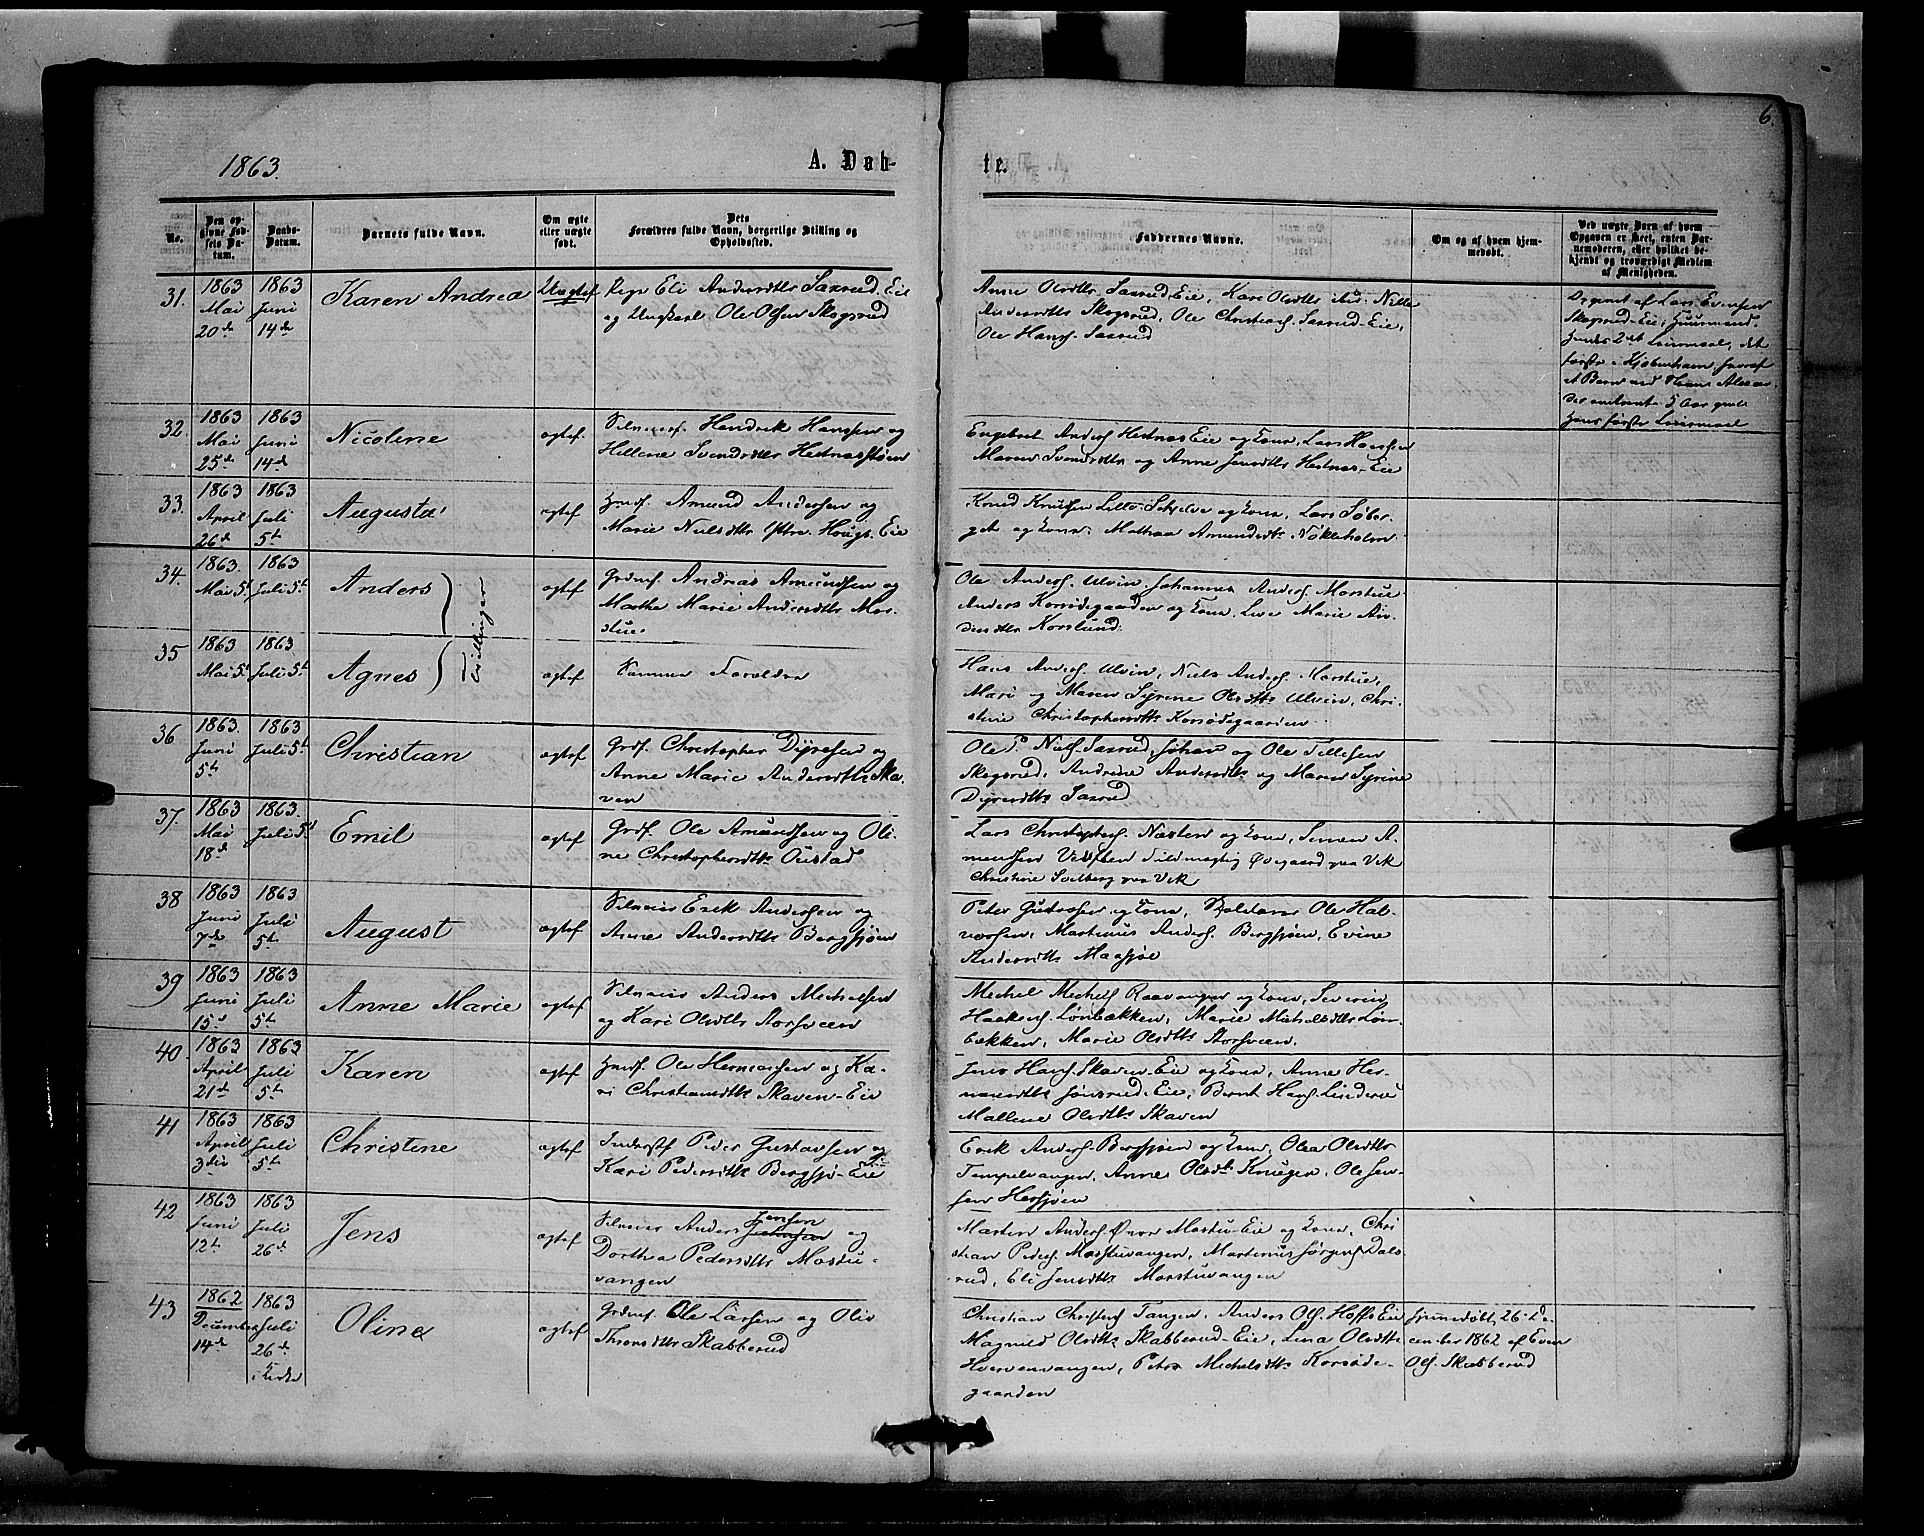 6.
1863.
A. Døb-
te.
No.
Den op-
givne Fød-
sels Da-
tum.
Daabs-
Datum.
Barnets fulde Navn.
Om ægte
eller uægte
født.
Dets
Forældres fulde Navn, borgerlige Stilling og
Opholdssted.
Faddernes Navne.
Om og af hvem hjem-
medøbt.
Ved uægte Barn af hvem
Opgaven er skeet, enten Bar-
nemoderen, eller hvilket be-
kjendt og troværdigt Medlem
af Menigheden.
31.
1863
Mai
20de
1863
Juni
14de
Karen Andrea
Uægtef
Pige Eli Andersdtr Saxrud Eie
og Ungkarl Ole Olsen Skogsrud
Anne Olsdtr Saxrud Eie, Kari Olsdtr ibid. Nille
Andersdtr Skogsrud, Ole Christians. Saxrud-Eie,
Ole Hans. Saxrud
Opgivet af Lars Evensen
Skogsrud-Eie, Huusmand.
Hendes 2det Leiermaal, det
første i Kjøbenhavn
5 Aar
Hans første Leiermaal
32.
1863
Mai
25de
1863
Juni
14de
Nicoline
ægtef.
Selveier. Hendrik Hanssen og
Hellene Svendsdtr Hestnæsstøen
Engebret Anders. Hestnæs Eie og Kone, Lars Hanssen
Maren Svendsdtr og Anne Jensdtr Hestnæs-Eie
33.
1863
April
26de
1863
Juli
5te
Augusta
ægtef
Hmd. Amund Andersen og
Marie Nielsdtr Ystre Hougs. Eie
Knud Knutsen Lille- og Kone, Lars Søber-
get og Kone. Mathea Amundsdtr Nøkleholm
34.
1863.
Mai 5t
1863
Juli 5t
Anders
Tvillinger
ægtef
Grdmd. Andreas Amundsen og
Marthe Marie Andersdtr Mor-
stue.
Ole Anders. Ulvin, Johannes Anders. Morstue
Anders Korsødegaarden og Kone, Live Marie An-
dersdtr Korslund.
35
1863
Mai 5t
1863
Juli 5t
Agnes
ægtef
Samme Forældre
Hans Anders. Ulvin, Niels Anders. Morstue,
Mari og Maren Syrine Olsdtr Ulvin, Chri-
stine Christophersdtr Korsødegaarden
36
1863.
Juni
5te
1863
Juli 5t
Christian
ægtef
Grd. Christopher Dyresen og
Anne Marie Andersdtr Ska-
ven
Ole P. Niels. Saxrud, Johan og Ole Tillesen
Skogsrud, Andrine Andersdtr og Maren Syrine
Dyresdtr Saxrud
37.
1863
Mai
18de
1863.
Juli 5t
Emil
ægtef
Grd. Ole Amundsen og Oli-
ne Christophersdtr Oustad
Lars Christophers. Næsten og Kone, Simen A-
mundsen Fuldmægtig Øvergaard paa Vik
Christine Solberg paa Vik
38
1863
Juni
7de
1863
Juli
5te
August
ægtef
Selveier Erik Andersen og
Anne Andersdtr Bergsjøen
Peter Gustavsen og Kone, Skolelærer Ole Hal-
vorsen, Martinus Anders. Bergsjøen, Evine
Andersdtr Maasjøe
39
1863
Juni
15de
1863
Juli
5te
Anne Marie
ægtef
Selveier Anders Michelsen
og Kari Olsdtr Storsveen
Michel Michels. Raavangen og Kone, Severin
Haakens. Lønbækken, Marie Michelsdtr Løn-
bækken, Marie Olsdtr Storsveen.
40.
1863
April
21de
1863
Juli
5te
Karen
ægtef
Hmd. Ole Hermansen og Ka-
ri Christiansdtr Skaven-Eie
Jens Hans. Skaven-Eie og Kone, Anne Her-
mansdtr Jønsrud-Eie, Bernt Hans. Linderu
Mallene Olsdtr Skaven
41
1863
April
3die
1863
Juli
5te
Christine
ægtef
Inderst Peder Gustavsen og
Kari Pedersdtr Bergsjø-Eie
Erik Anders. Bergsjøen og Kone, Olea Olsdtr
Tempelvangen, Anne Olsdtr Krueger, Ole Jen-
sen Hersjøen
42
1863
Juni
12te
1863
Juli
26de
Jens
ægtef
Selveier Anders Jensen og
Dorthea Pedersdtr Mostu-
vangen
Martin Anders. Øvre Mostu-Eie og Kone, Chri
stian Peders. Morstuvangen, Martinus Jørgens. Dals-
rud, Eli Jensdtr Morstuvangen
43
1862
December
14de
1863
Juli
26de
i Kirke
Olina
ægtef
Grdmd. Ole Larsen og Olia
Thronsdtr Skabberud
Christian Christens. Tangen, Anders Ols. Hoffs Eie
Magnild Olsdtr Skabberud-Eie, Lina Olsdtr
Hvervenvangen, Petra Michelsdtr Korsøde-
gaarden
Hjemmedøbt, 26-De-
cember 1862 af Even
Ols. Skabberud